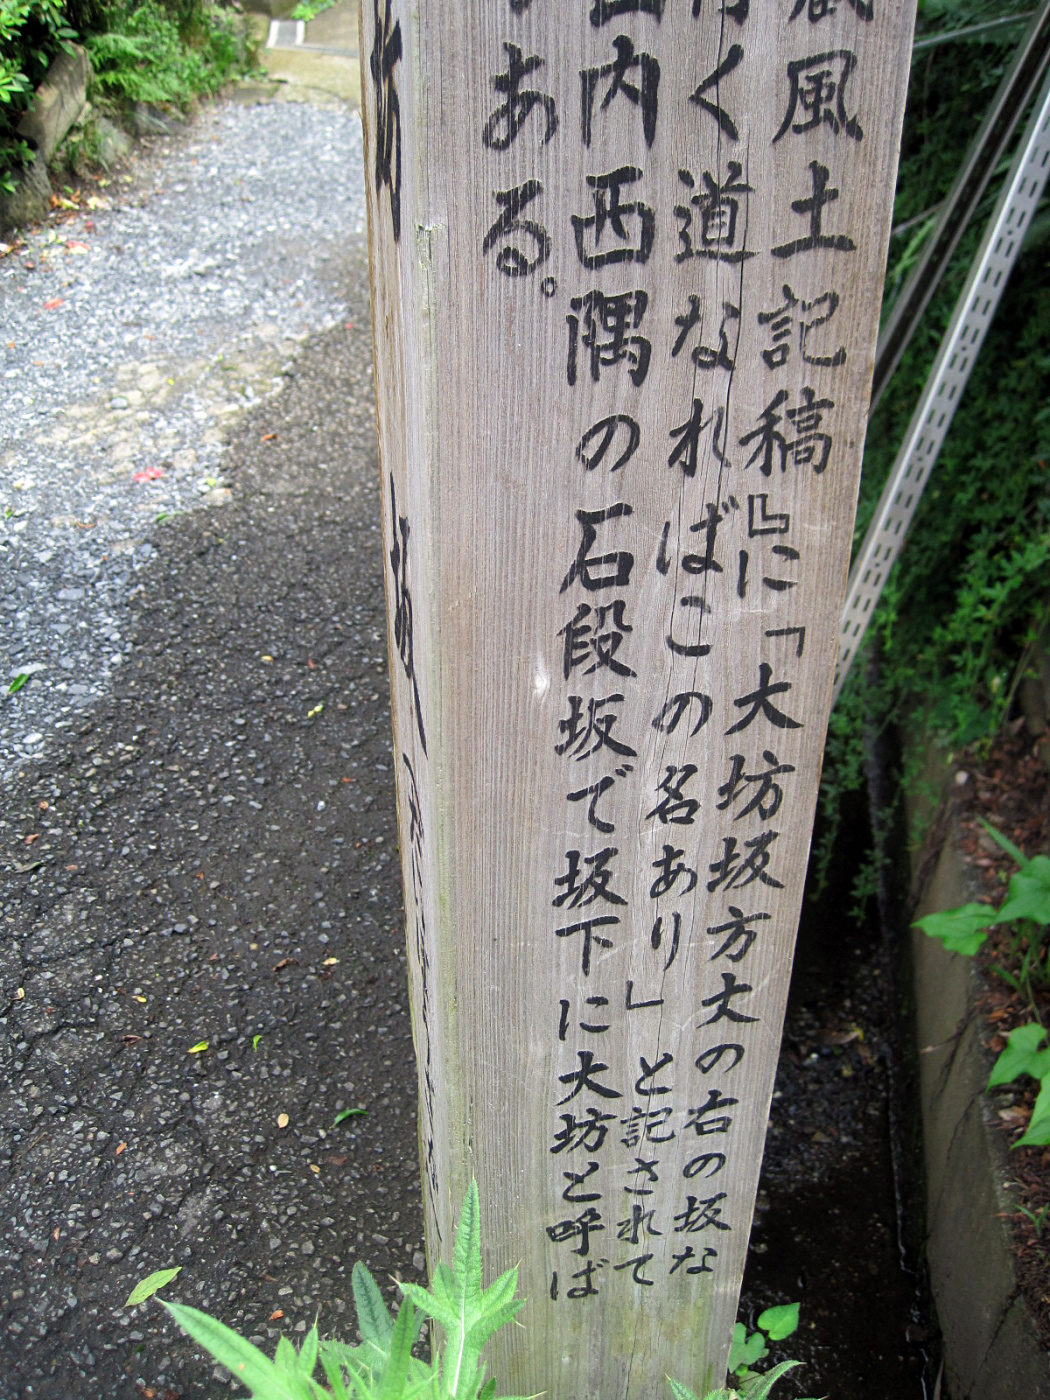 風土記稿』に「大坊坂方丈の右の坂な
く道なればこの名あり」と記されて
内西隅の石段坂で坂下に大坊と呼ば
ある。